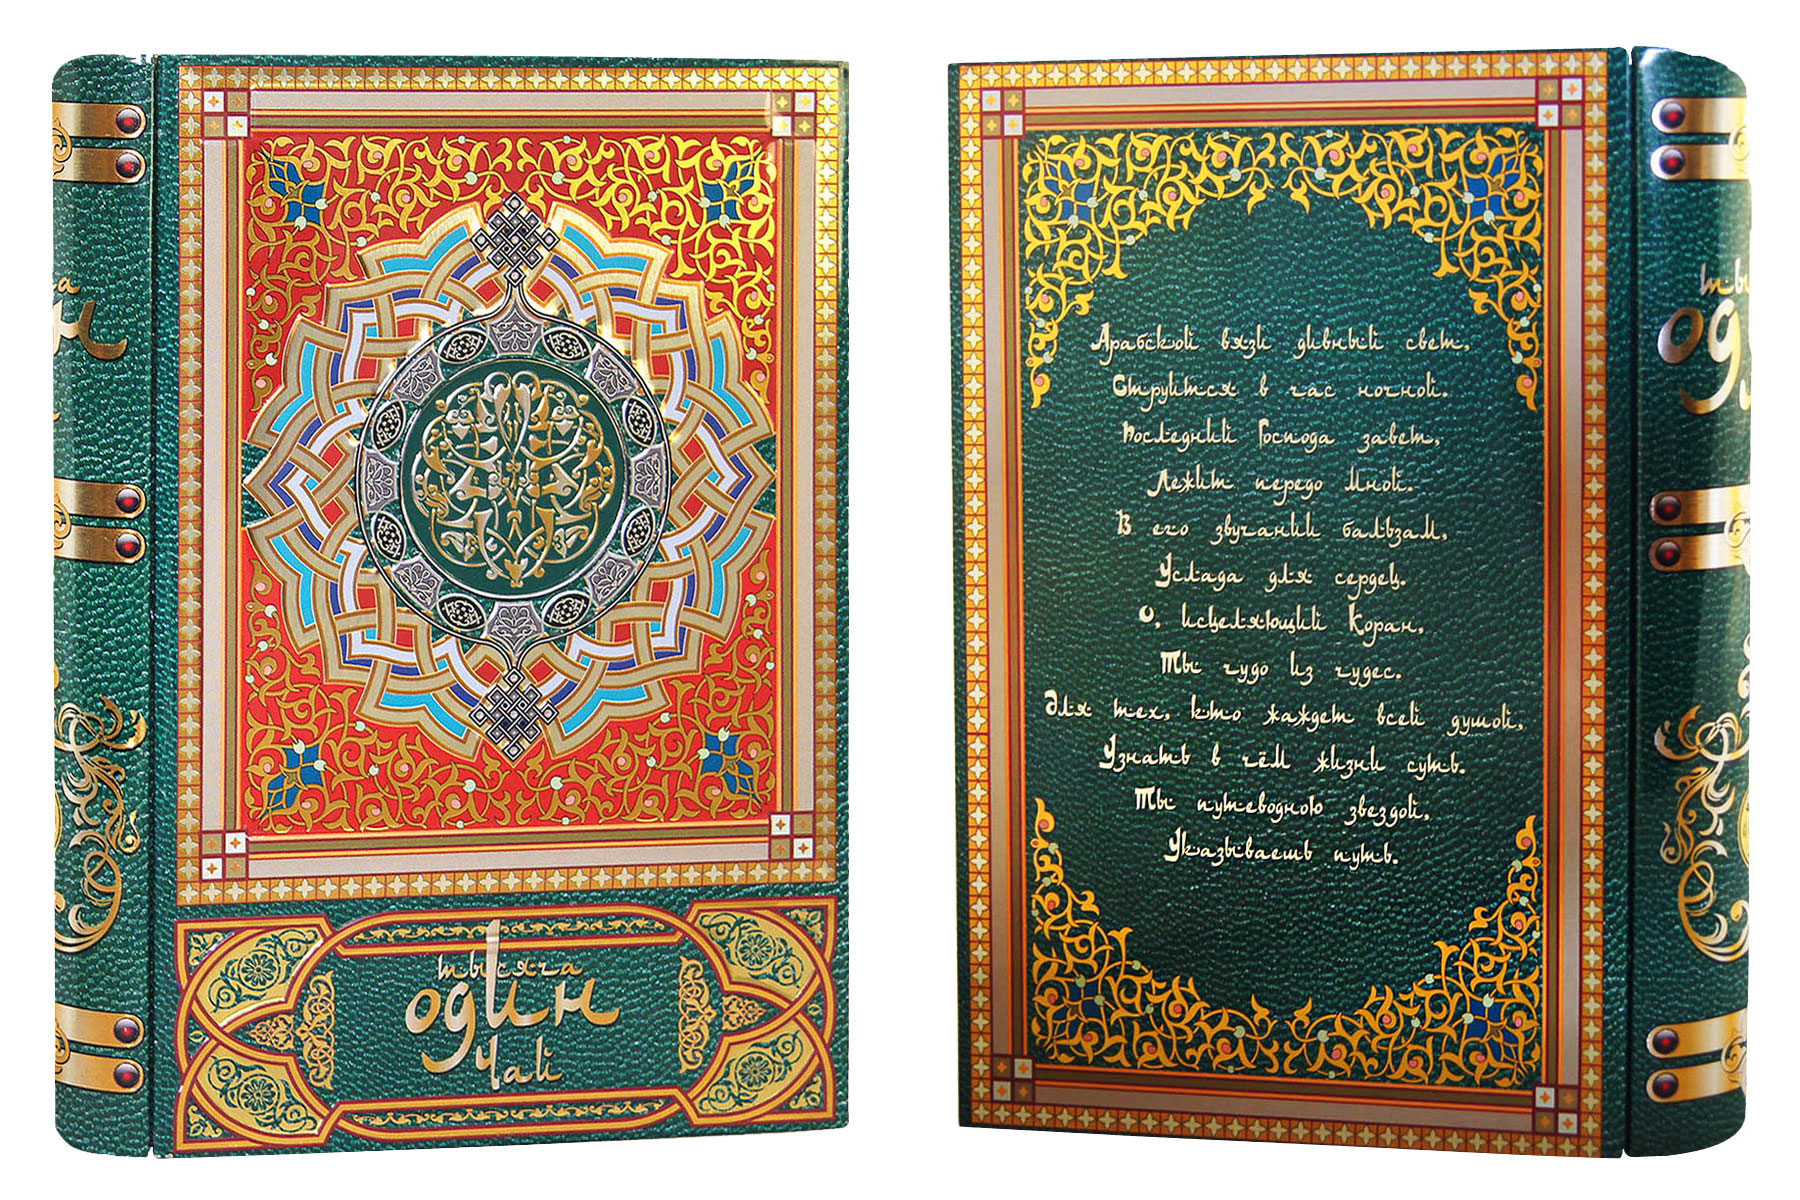 тысяча
один
чай
Арабской вязи дивный свет,
Струится в час ночной.
Последний Господа завет,
Лежит передо мной.
В его звучании бальзам,
Услада для сердец.
О, исцеляющий Коран,
Ты чудо из чудес.
Для тех, кто жаждет всей душой,
Узнать в чём жизни суть.
Ты путеводною звездой,
Указываешь путь.